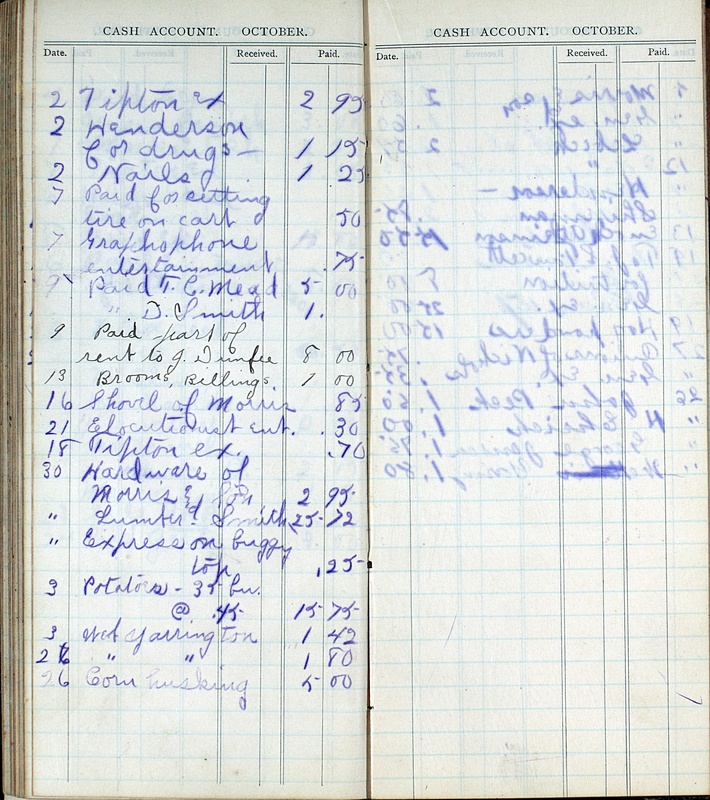 CASH ACCOUNT. OCTOBER.
Date. Received. Paid.
2 Tipton ex 2 95
2 Henderson
for drugs — 1 15
2 Nails 1 25
7 Paid for setting
tire on cart 50
7 Graphophone
entertainment .75
9 Paid T. C. Mead 5 00
" D. Smith 1.
9 Paid part of
rent to J. Dunfee 8 00
13 Brooms, Billings. 1 00
16 Shovel of Morris 85
21 Elocutionist ent. .30
18 Tipton ex. .70
30 Hardware of
Morris & Son 2 95
" Lumber Smith 25 72
" Express on buggy
top .25
3 Potatoes - 35 bu.
@ .45 15 75
3 Yarrington 1 42
26 " " 1 80
26 Corn husking 5 00
CASH ACCOUNT. OCTOBER.
Date. Received. Paid.